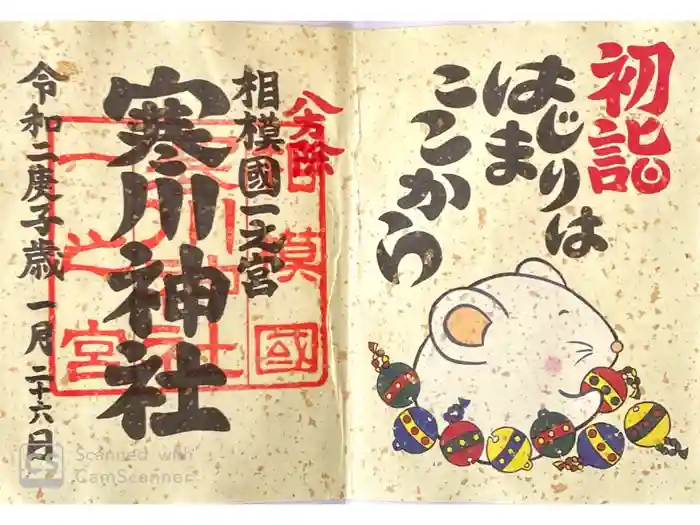 初詣
はじまりは
ここから
八方除
相模國一之宮
寒川神社
令和二庚子歳 一月二十六日
相模國
寒川神社
一之宮
CS Scanned with
CamScanner